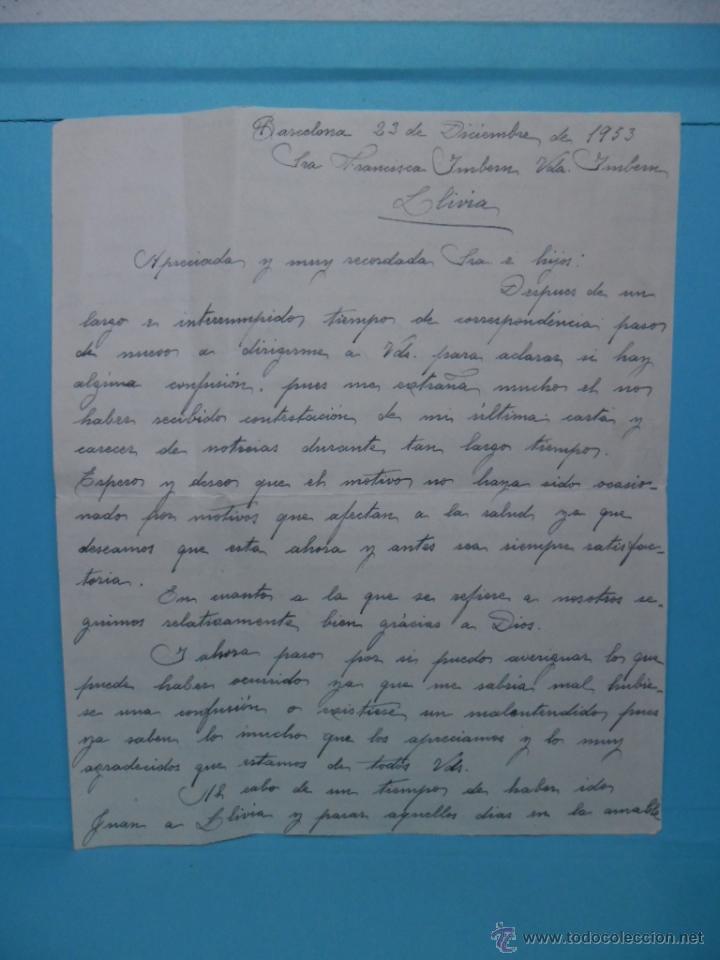 Barcelona 23 de Diciembre de 1953
Sra Francisca Imbern Vda. Imbern
Llivia
Apreciada y muy recordada Sra e hijos:
Despues de un
largo e interrumpido tiempo de correspondencia paso
de nuevo a dirigirme a Vds. para aclarar si hay
alguna confusión, pues me extraña mucho el no
haber recibido contestación de mi última carta y
carecer de noticias durante tan largo tiempo.
Espero y deseo que el motivo no haya sido ocasio-
nado por motivos que afectan a la salud ya que
deseamos que esta ahora y antes sea siempre satisfac-
toria.
En cuanto a la que se refiere a nosotros se-
guimos relativamente bien grácias a Dios.
I ahora paso por si puedo averiguar lo que
puede haber ocurrido ya que me sabria mal hubie-
se una confusión o existiese un malentendido pues
ya saben lo mucho que los apreciamos y lo muy
agradecidos que estamos de todos Vds.
Al cabo de un tiempo de haber ido
Juan a Llivia y pasar aquellos dias en la amable
www.todocoleccion.net